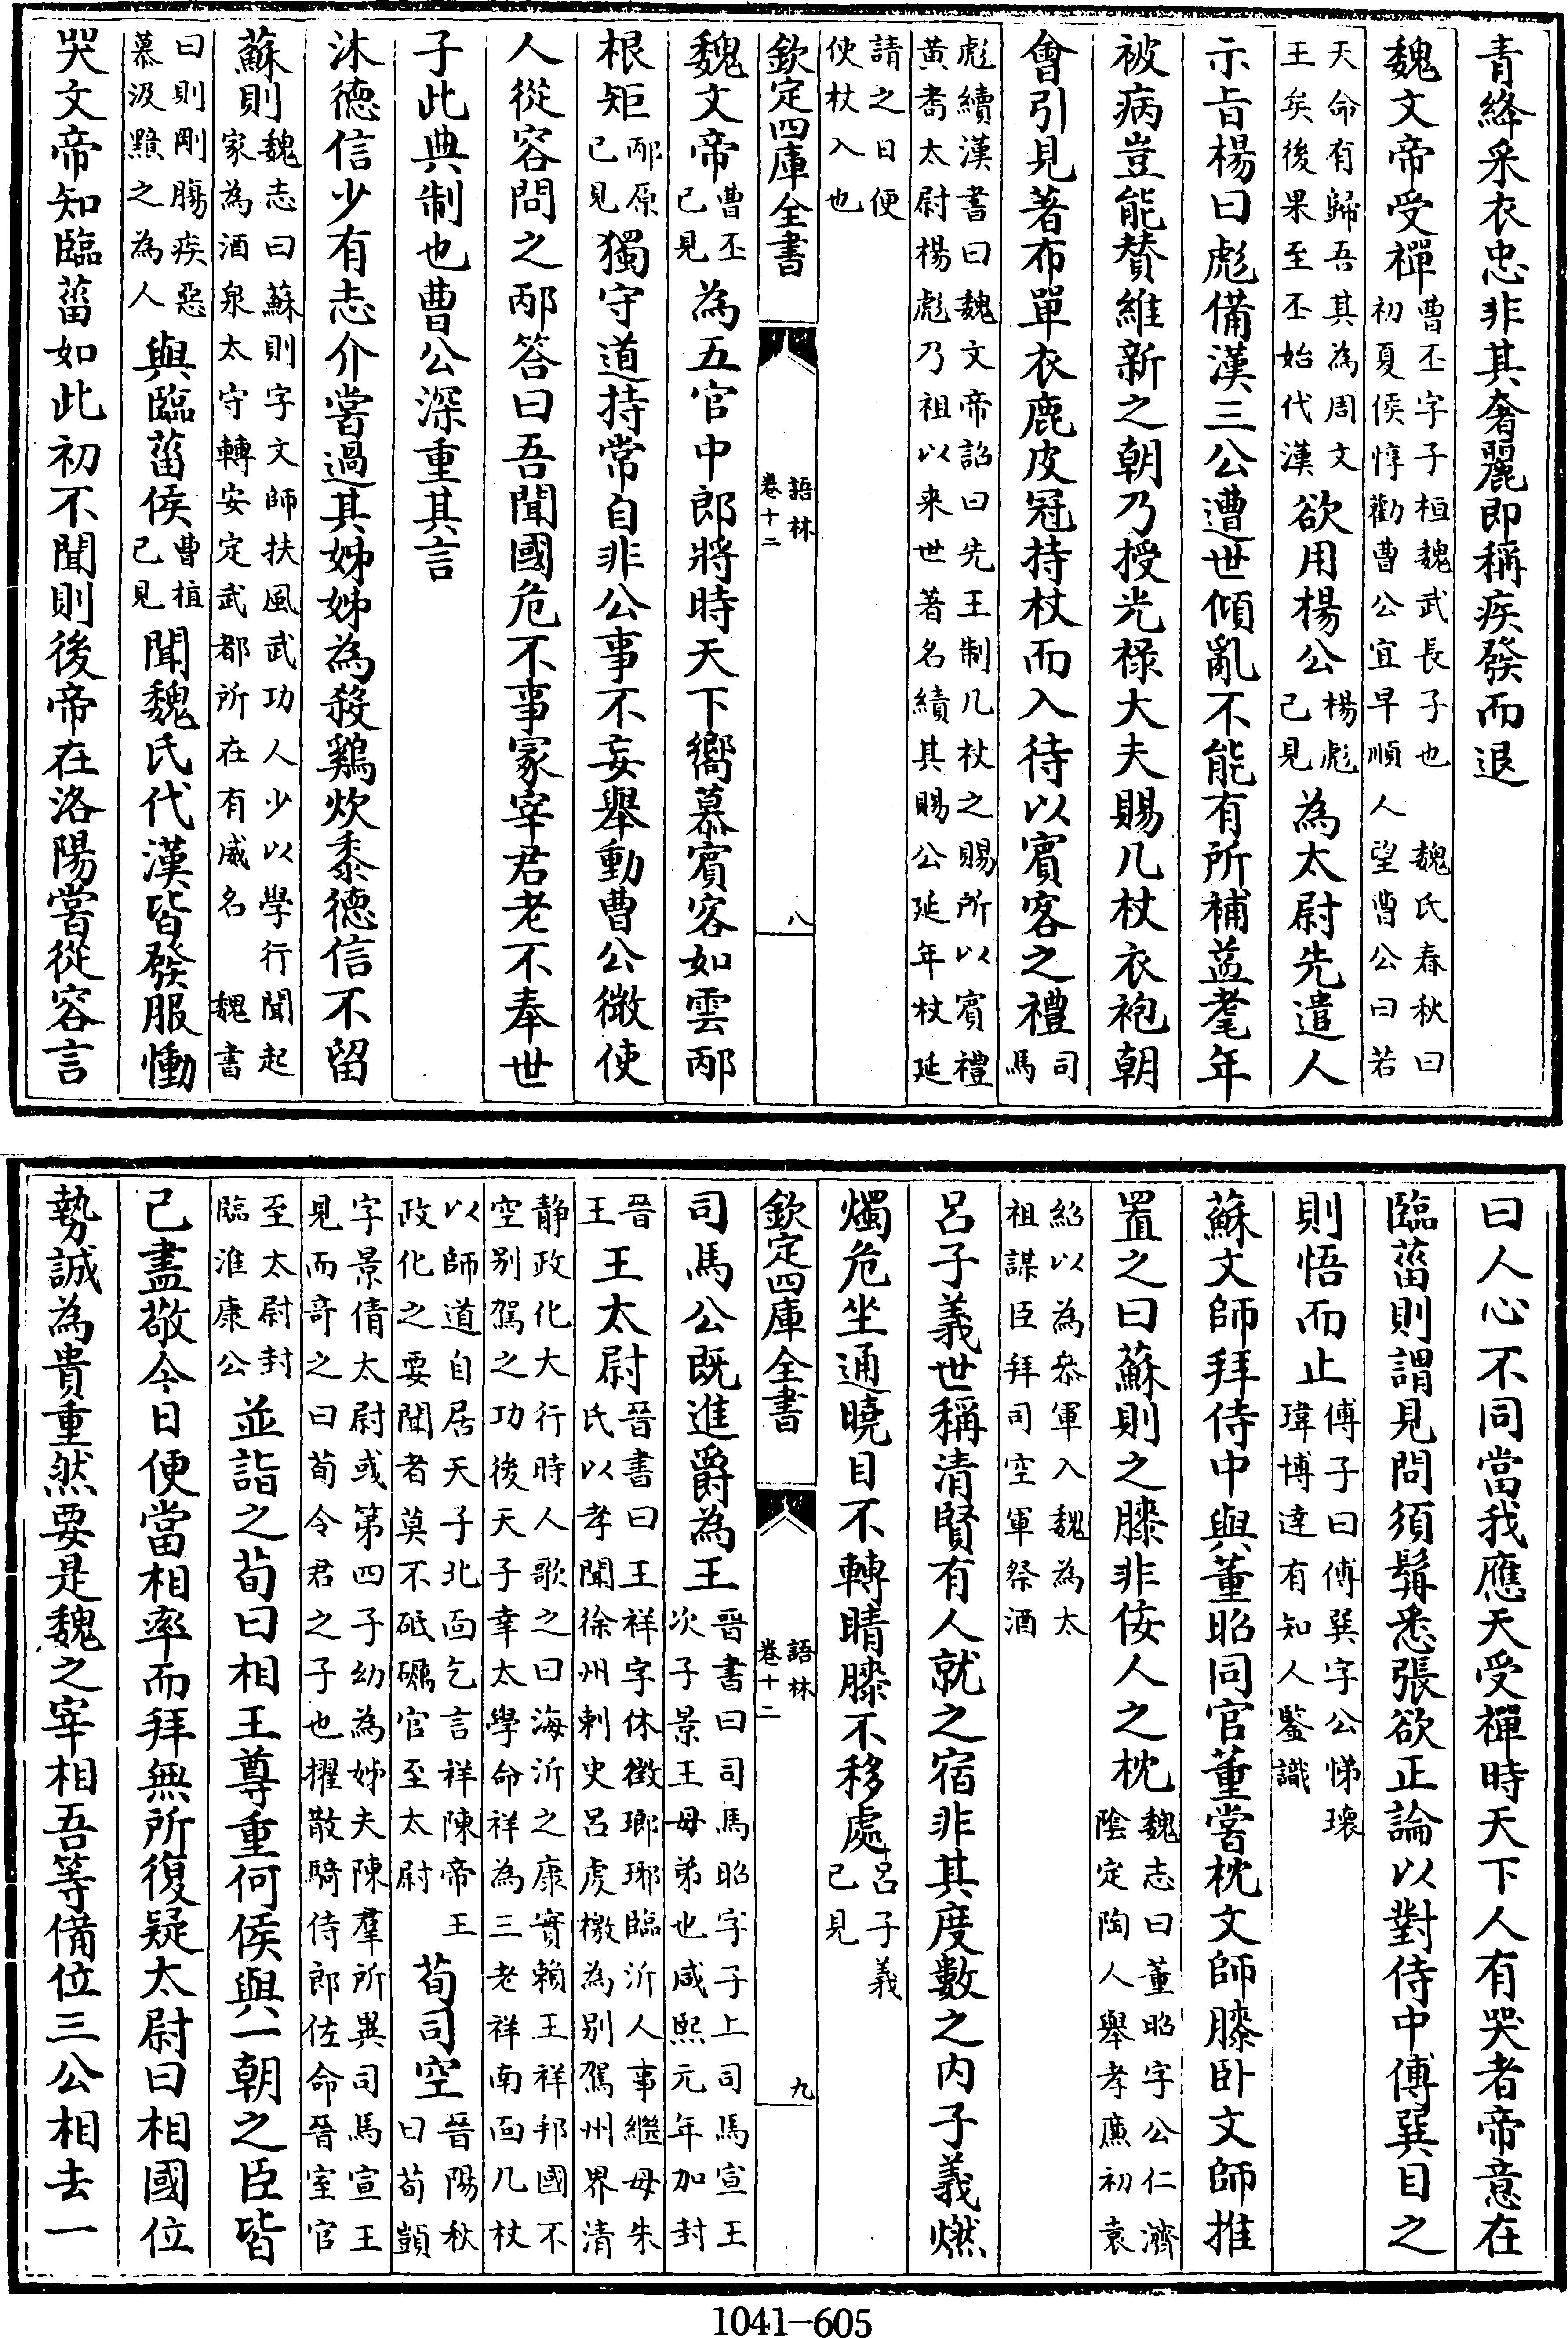 青絳采衣忠非其奢麗即稱疾發而退
魏文帝受禪曹丕字子桓魏武長子也 魏氏春秋曰初夏侯惇勸曹公宜早順人望曹公曰若
天命有歸吾其為周文王矣後果至丕始代漢欲用楊公楊彪已見為太尉先遣人
示旨楊曰彪備漢三公遭世傾亂不能有所補益耄年
被病豈能賛維新之朝乃授光祿大夫賜几杖衣袍朝
會引見著布單衣鹿皮冠持杖而入待以賓客之禮司馬
彪續漢書曰魏文帝詔曰先王制几杖之賜所以賓禮黃耈太尉楊彪乃祖以来世著名績其賜公延年杖延
請之日便使杖入也
欽定四庫全書 語林 卷十二 八
魏文帝曹丕已見為五官中郎將時天下嚮慕賓客如雲邴
根矩邴原已見獨守道持常自非公事不妄舉動曹公微使
人從容問之邴答曰吾聞國危不事冢宰君老不奉世
子此典制也曹公深重其言
沐德信少有志介嘗過其姊姊為殺鷄炊黍德信不留
蘇則魏志曰蘇則字文師扶風武功人少以學行聞起家為酒泉太守轉安定武都所在有威名 魏書
曰則剛膓疾惡慕汲黯之為人與臨菑侯曹植已見聞魏氏代漢皆發服慟
哭文帝知臨菑如此初不聞則後帝在洛陽嘗從容言
曰人心不同當我應天受禪時天下人有哭者帝意在
臨菑則謂見問須髯悉張欲正論以對侍中傅巽目之
則悟而止傅子曰傅巽字公悌瓌瑋博達有知人鑒識
蘇文師拜侍中與董昭同官董嘗枕文師膝卧文師推
置之曰蘇則之膝非佞人之枕魏志曰董昭字公仁濟陰定陶人舉孝亷初袁
紹以為叅軍入魏為太祖謀臣拜司空軍祭酒
呂子義世稱清賢有人就之宿非其度數之内子義燃
燭危坐通曉目不轉睛膝不移處呂子義已見
欽定四庫全書 語林 卷十二 九
司馬公既進爵為王晉書曰司馬昭字子上司馬宣王次子景王母弟也咸熙元年加封
晉王王太尉晉書曰王祥字休徵瑯琊臨沂人事繼母朱氏以孝聞徐州刺史呂虔檄為别駕州界清
静政化大行時人歌之曰海沂之康實賴王祥邦國不空别駕之功後天子幸太學命祥為三老祥南面几杖
以師道自居天子北面乞言祥陳帝王政化之要聞者莫不砥礪官至太尉荀司空晉陽秋曰荀顗
字景倩太尉彧第四子幼為姊夫陳羣所異司馬宣王見而竒之曰荀令君之子也擢散騎侍郎佐命晉室官
至太尉封臨淮康公並詣之荀曰相王尊重何侯與一朝之臣皆
已盡敬今日便當相率而拜無所復疑太尉曰相國位
勢誠為貴重然要是魏之宰相吾等備位三公相去一
1041—605